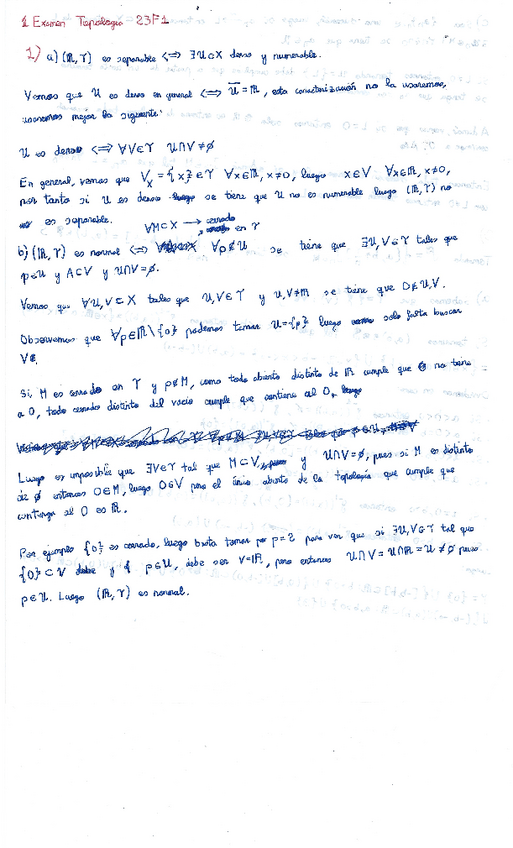 1 Examen Topología - 23F1
1) a) (ℝ, Υ) es separable ⟺ ∃U⊂X denso y numerable.
Vemos que U es denso en general ⟺ Ū = ℝ, esta caracterización no la usaremos,
usaremos mejor la siguiente:
U es denso ⟺ ∀V∈Υ U∩V≠∅
En general, vemos que V_x = {x}∈Υ ∀x∈ℝ, x≠0, luego x∈V ∀x∈ℝ, x≠0,
por tanto si U es denso se tiene que U no es numerable luego (ℝ, Υ) no
es separable.
∀M⊂X → cerrado en Υ
b) (ℝ, Υ) es normal ⟺ ∀p∉U se tiene que ∃U,V∈Υ tales que
p∈U y A⊂V y U∩V=∅.
Vemos que ∀U,V⊂X tales que U,V∈Υ y U,V≠ℝ se tiene que 0∉U,V.
Observemos que ∀p∈ℝ\{0} podemos tomar U={p} luego solo falta buscar
V
Si M es cerrado en Υ y p∉M, como todo abierto distinto de ℝ cumple que no tiene
a 0, todo cerrado distinto del vacío cumple que contiene al 0,
Luego es imposible que ∃V∈Υ tal que M⊂V, y U∩V=∅, pues si M es distinto
de ∅ entonces 0∈M, luego 0∈V pero el único abierto de la topología que cumple que
contenga al 0 es ℝ.
Por ejemplo {0} es cerrado, luego basta tomar p=2 para ver que si ∃U,V∈Υ tal que
{0}⊂V y p∈U, debe ser V=ℝ, pero entonces U∩V = U∩ℝ = U ≠ ∅ pues
p∈U. Luego (ℝ, Υ) es normal.